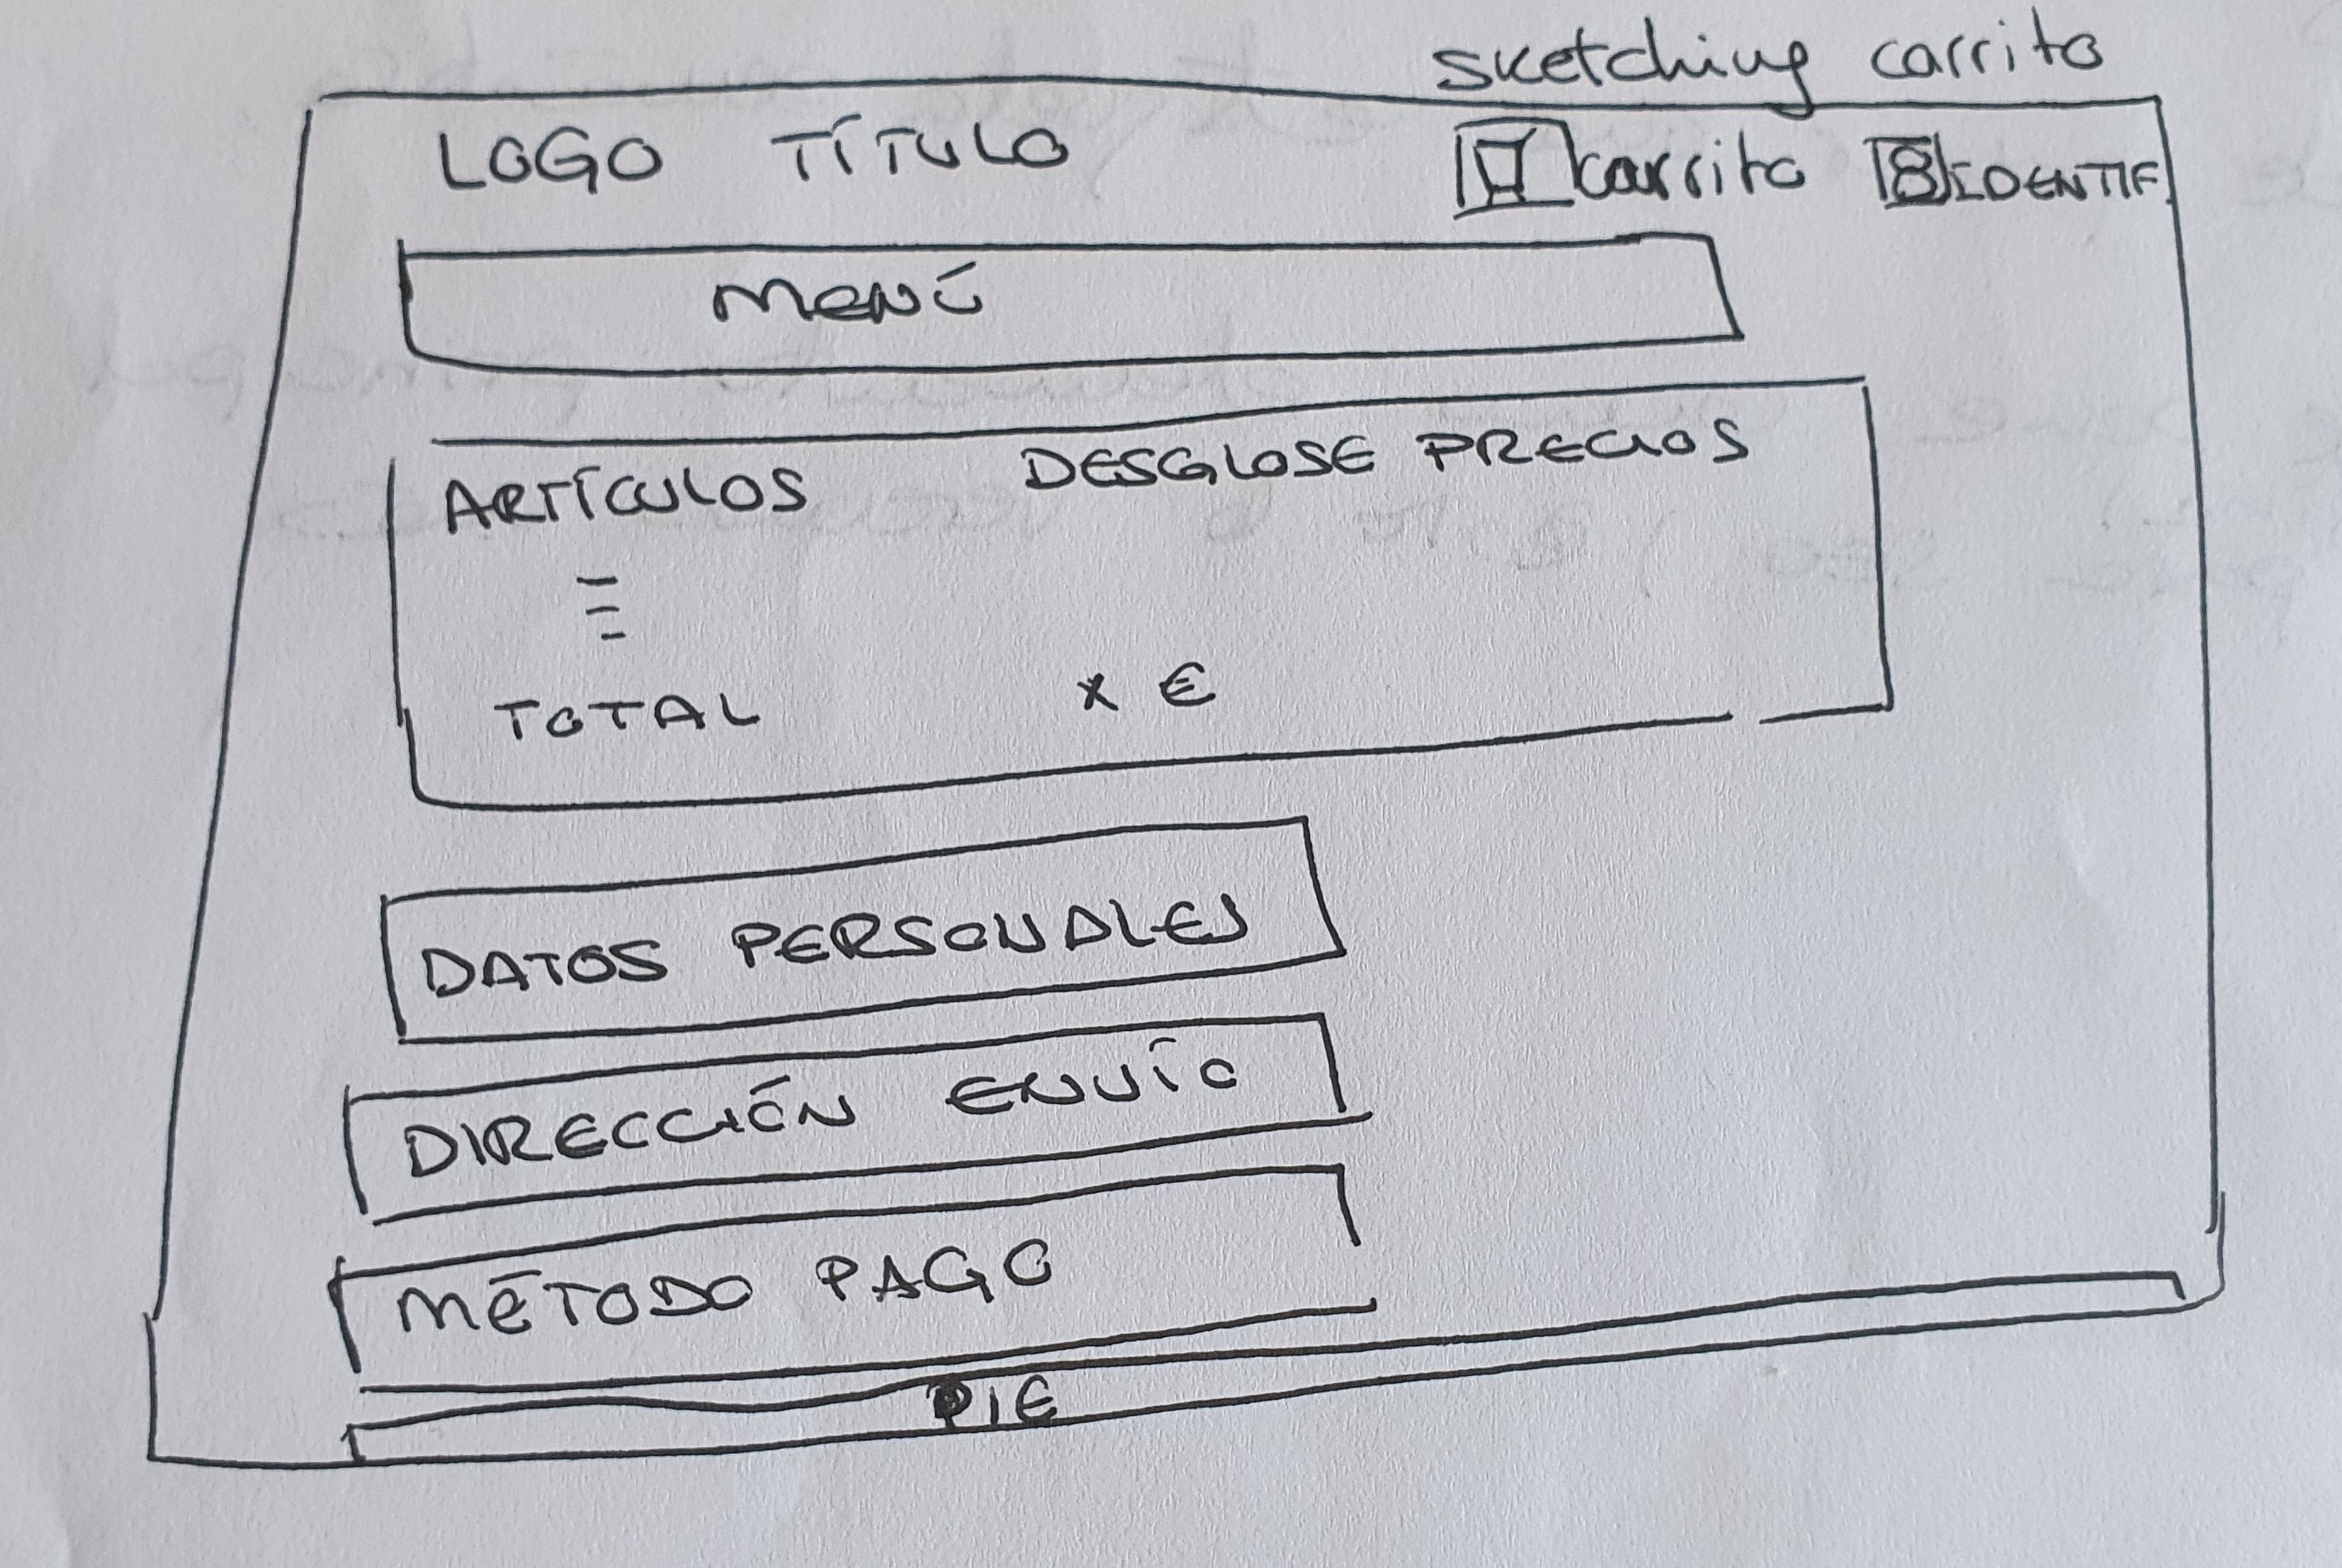 sketching carrito
LOGO TÍTULO carrito IDENTIF.
MENÚ
ARTÍCULOS DESGLOSE PRECIOS
TOTAL X €
DATOS PERSONALES
DIRECCIÓN ENVÍO
MÉTODO PAGO
PIE